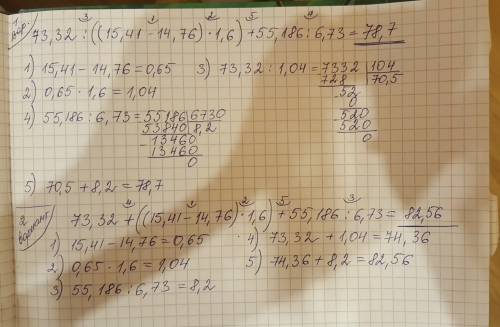 1 вар.
3 1 2 5 4
73,32 : ((15,41 − 14,76) · 1,6) + 55,186 : 6,73 = 78,7
1) 15,41 − 14,76 = 0,65 3) 73,32 : 1,04 = 7332 | 104
728 | 70,5
2) 0,65 · 1,6 = 1,04 − 52
0
4) 55,186 : 6,73 = 55186 | 6730 − 520
53840 | 8,2 520
− 13460 0
13460
0
5) 70,5 + 8,2 = 78,7
4 1 2 5 3
2 вариант 73,32 + ((15,41 − 14,76) · 1,6) + 55,186 : 6,73 = 82,56
1) 15,41 − 14,76 = 0,65 4) 73,32 + 1,04 = 74,36
2) 0,65 · 1,6 = 1,04 5) 74,36 + 8,2 = 82,56
3) 55,186 : 6,73 = 8,2